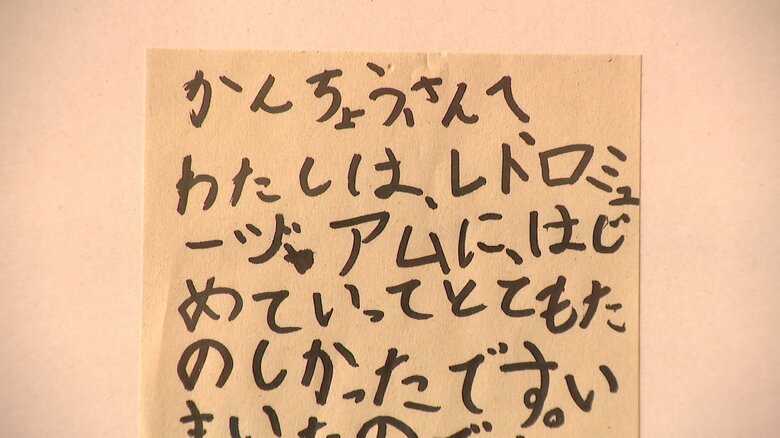 かんちょうさんへ
わたしは、レドロミュ
ーヅアムに、はじ
めていってとてもた
のしかったです。い